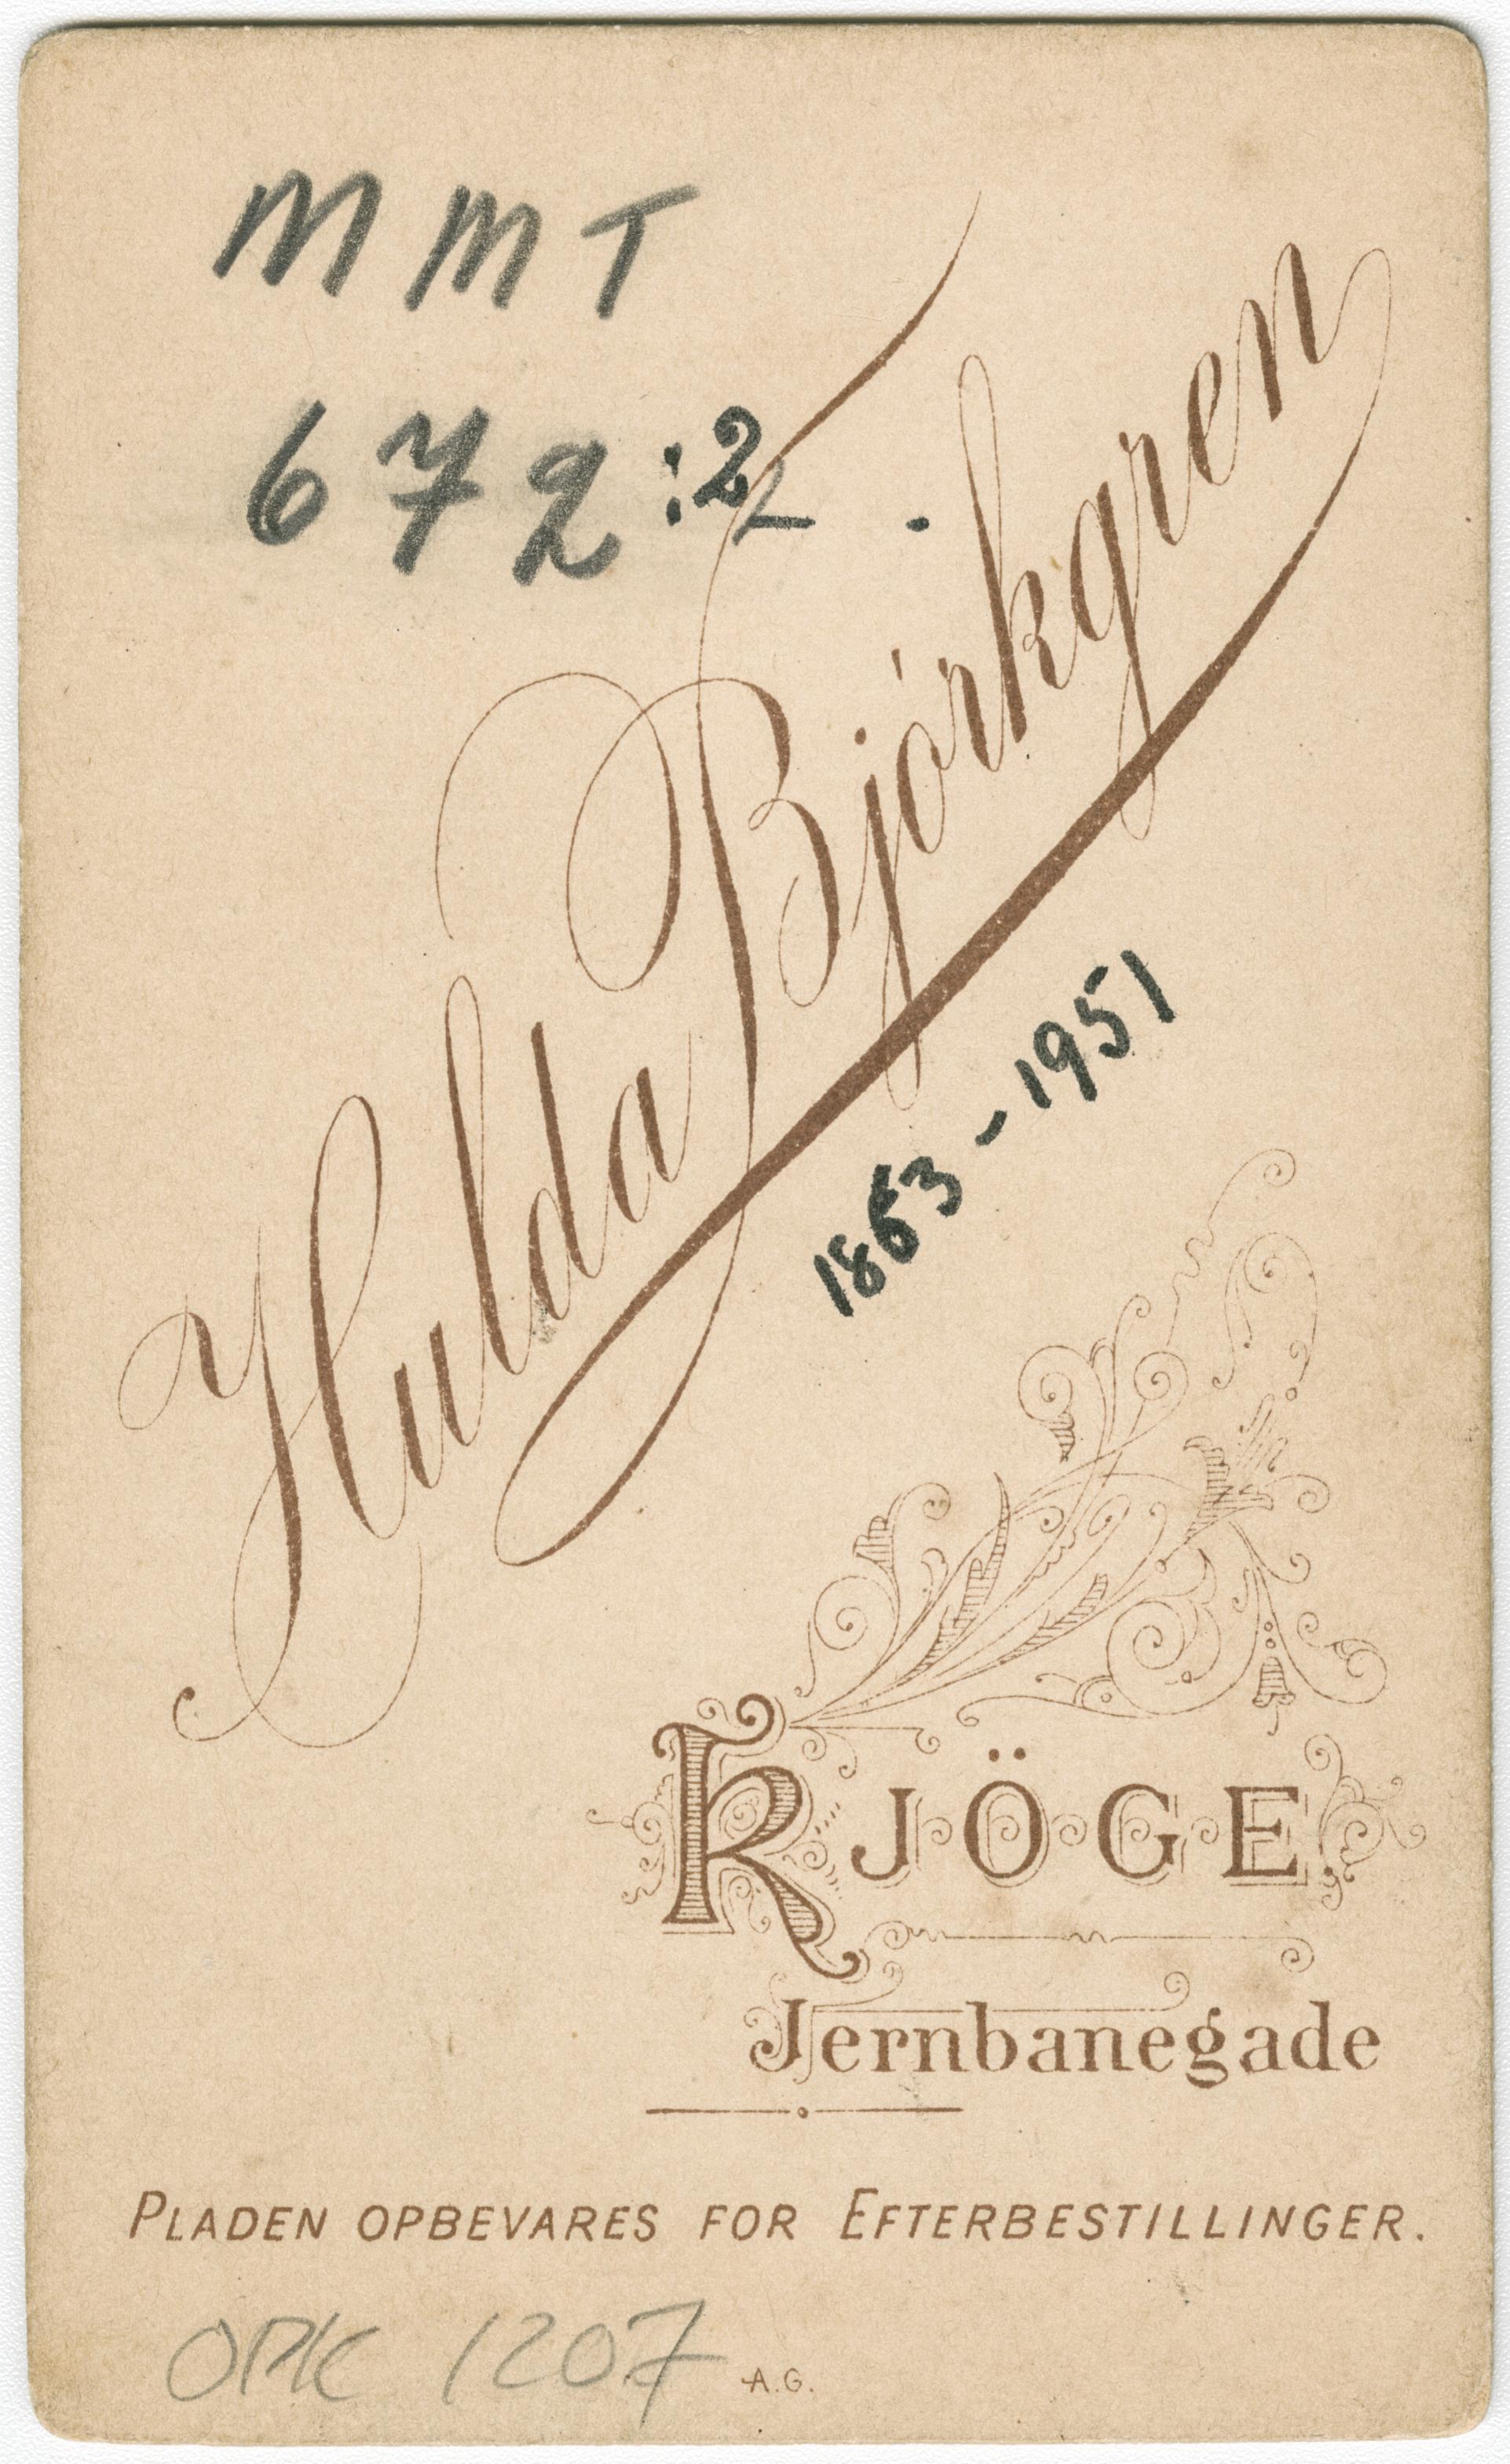 MMT
672:2
Hulda Björkgren
1863-1951
KJÖGE.
Jernbanegade
PLADEN OPBEVARES FOR EFTERBESTILLINGER.
OPK 1207
A.G.